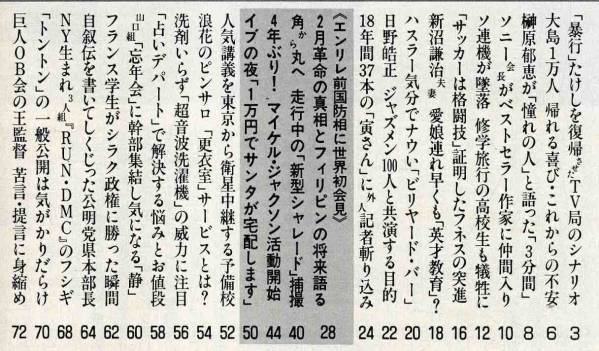 「暴行」たけしを復帰させTV局のシナリオ 3
大島1万人 帰れる喜び・これからの不安 6
榊原郁恵が「憧れの人」と語った「3分間」 8
ソニー会長がベストセラー作家に仲間入り 10
ソ連機が墜落 修学旅行の高校生も犠牲に 12
「サッカーは格闘技」証明したフネスの突進 16
新沼謙治夫妻 愛娘連れ早くも「英才教育」? 18
ハスラー気分でナウい「ビリヤード・バー」 20
日野皓正 ジャズメン100人と共演する目的 22
18年間37本の「寅さん」に外人記者斬り込み 24
〈エンリレ前国防相に世界初会見〉
2月革命の真相とフィリピンの将来語る 28
角から丸へ 走行中の「新型シャレード」捕撮 40
4年ぶり!マイケル・ジャクソン活動開始 44
イブの夜「1万円でサンタが宅配します」 50
人気講義を東京から衛星中継する予備校 52
浪花のピンサロ 「更衣室」サービスとは? 54
洗剤いらず「超音波洗濯機」の威力に注目 56
「占いデパート」で解決する悩みとお値段 58
山口組「忘年会」に幹部集結し気になる「静」 60
フランス学生がシラク政権に勝った瞬間 62
自叙伝を書いてしくじった公明党県本部長 64
NY生まれ3人組『RUN・DMC』のフシギ 68
「トントン」の一般公開は気がかりだらけ 70
巨人OB会の王監督 苦言・提言に身縮め 72